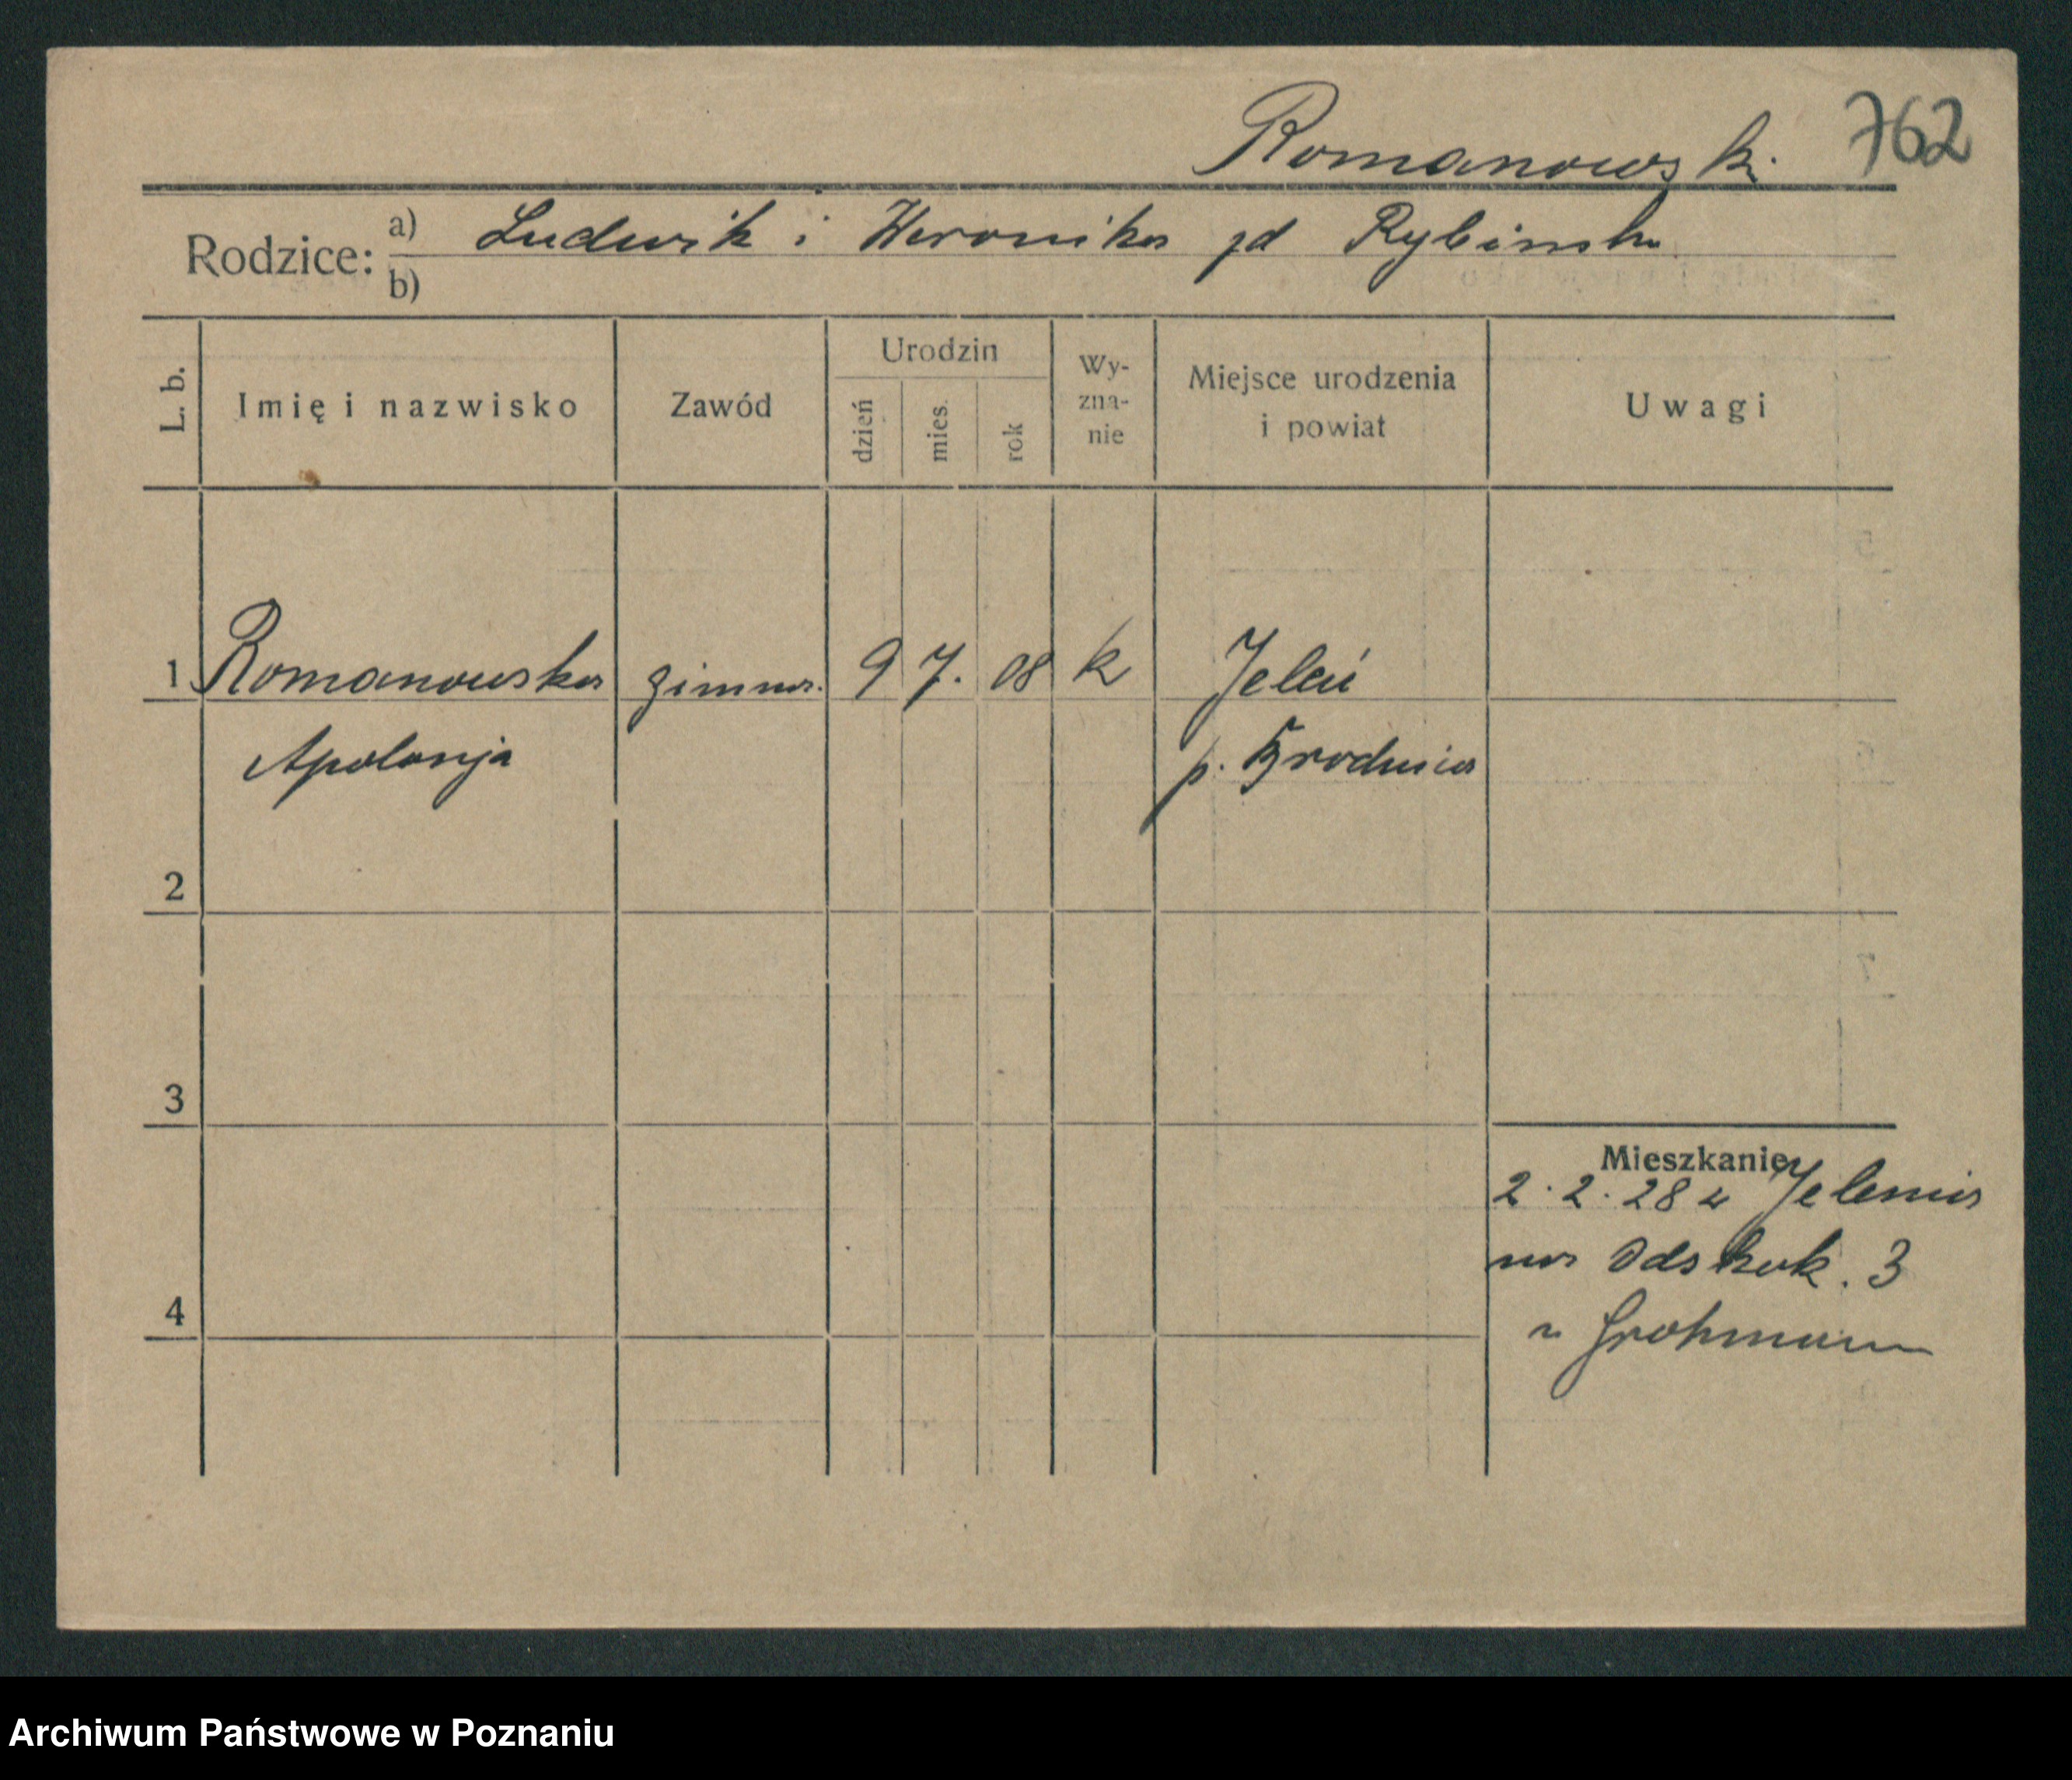 Romanowski 762
Rodzice: a) Ludwik i Weronika zd Rybinska
b)
L. b. Imię i nazwisko Zawód Urodzin dzień mies. rok Wy-zna-nie Miejsce urodzenia i powiat Uwagi
1 Romanowska gimna. 9 7. 08 k Jeleń
Apolonja p. Brodnica
2
3
Mieszkanie
2.2.28 z Jelenia
na Odskok. 3
4
u Grohmann
Archiwum Państwowe w Poznaniu